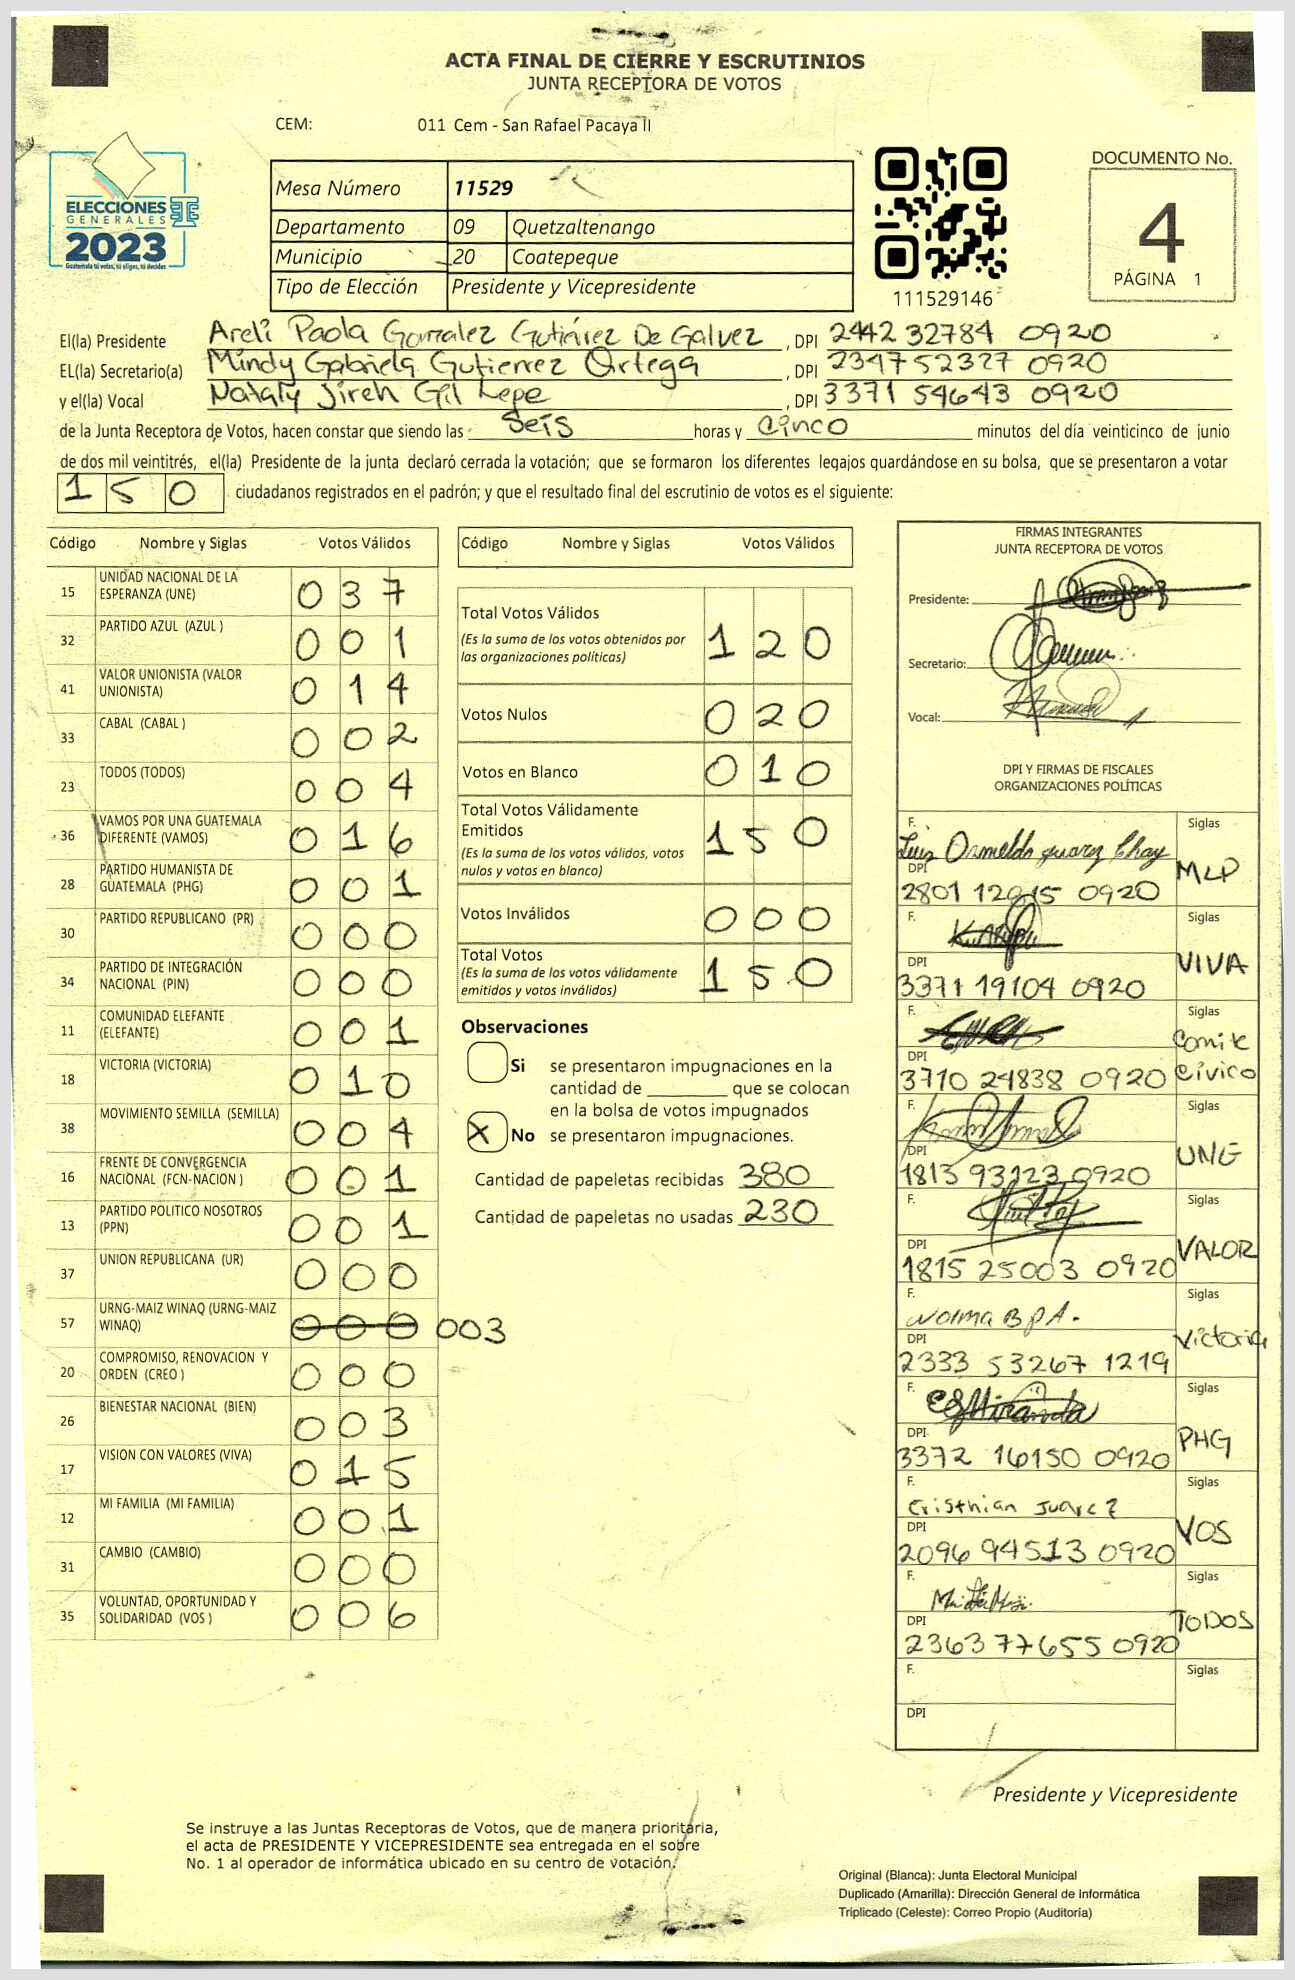 ACTA FINAL DE CIERRE Y ESCRUTINIOS
JUNTA RECEPTORA DE VOTOS
CEM: 011 Cem - San Rafael Pacaya II
ELECCIONES
GENERALES
2023
Guatemala tú votas, tú eliges, tú decides
Mesa Número 11529
Departamento 09 Quetzaltenango
Municipio 20 Coatepeque
Tipo de Elección Presidente y Vicepresidente
111529146
DOCUMENTO No.
4
PÁGINA 1
El(la) Presidente Areli Paola Gonzalez Gutiérez De Galvez, DPI 2442 32784 0920
EL(la) Secretario(a) Mindy Gabriela Gutierrez Ortega, DPI 2347 52327 0920
y el(la) Vocal Nataly Jireh Gil Lepe, DPI 3371 54643 0920
de la Junta Receptora de Votos, hacen constar que siendo las Seis horas y Cinco minutos del día veinticinco de junio
de dos mil veintitrés, el(la) Presidente de la junta declaró cerrada la votación; que se formaron los diferentes legajos guardándose en su bolsa, que se presentaron a votar
150 ciudadanos registrados en el padrón; y que el resultado final del escrutinio de votos es el siguiente:
Código Nombre y Siglas Votos Válidos
15 UNIDAD NACIONAL DE LA ESPERANZA (UNE) 037
32 PARTIDO AZUL (AZUL ) 001
41 VALOR UNIONISTA (VALOR UNIONISTA) 014
33 CABAL (CABAL ) 002
23 TODOS (TODOS) 004
36 VAMOS POR UNA GUATEMALA DIFERENTE (VAMOS) 016
28 PARTIDO HUMANISTA DE GUATEMALA (PHG) 001
30 PARTIDO REPUBLICANO (PR) 000
34 PARTIDO DE INTEGRACIÓN NACIONAL (PIN) 000
11 COMUNIDAD ELEFANTE (ELEFANTE) 001
18 VICTORIA (VICTORIA) 010
38 MOVIMIENTO SEMILLA (SEMILLA) 004
16 FRENTE DE CONVERGENCIA NACIONAL (FCN-NACION ) 001
13 PARTIDO POLITICO NOSOTROS (PPN) 001
37 UNION REPUBLICANA (UR) 000
57 URNG-MAIZ WINAQ (URNG-MAIZ WINAQ) 000 003
20 COMPROMISO, RENOVACION Y ORDEN (CREO ) 000
26 BIENESTAR NACIONAL (BIEN) 003
17 VISION CON VALORES (VIVA) 015
12 MI FAMILIA (MI FAMILIA) 001
31 CAMBIO (CAMBIO) 000
35 VOLUNTAD, OPORTUNIDAD Y SOLIDARIDAD (VOS ) 006
Código Nombre y Siglas Votos Válidos
Total Votos Válidos 120
(Es la suma de los votos obtenidos por
las organizaciones políticas)
Votos Nulos 020
Votos en Blanco 010
Total Votos Válidamente
Emitidos 150
(Es la suma de los votos válidos, votos
nulos y votos en blanco)
Votos Inválidos 000
Total Votos 150
(Es la suma de los votos válidamente
emitidos y votos inválidos)
Observaciones
Si se presentaron impugnaciones en la
cantidad de ________ que se colocan
en la bolsa de votos impugnados
X No se presentaron impugnaciones.
Cantidad de papeletas recibidas 380
Cantidad de papeletas no usadas 230
FIRMAS INTEGRANTES
JUNTA RECEPTORA DE VOTOS
Presidente:
Secretario:
Vocal:
DPI Y FIRMAS DE FISCALES
ORGANIZACIONES POLÍTICAS
F. Luis Osmeldo Juarez Chay Siglas
DPI MLP
2801 12915 0920
F. Siglas
DPI VIVA
3371 19104 0920
F. Siglas
Comite
DPI
3710 24838 0920 Civico
F. Siglas
DPI UNE
1813 93123 0920
F. Siglas
DPI VALOR
1815 25003 0920
F. Norma B P A. Siglas
DPI Victoria
2333 53267 1219
F. Siglas
DPI PHG
3372 16150 0920
F. Cristhian Juarez Siglas
DPI VOS
2096 94513 0920
F. Siglas
DPI TODOS
2363 77655 0920
F. Siglas
DPI
Presidente y Vicepresidente
Se instruye a las Juntas Receptoras de Votos, que de manera prioritaria,
el acta de PRESIDENTE Y VICEPRESIDENTE sea entregada en el sobre
No. 1 al operador de informática ubicado en su centro de votación.
Original (Blanca): Junta Electoral Municipal
Duplicado (Amarilla): Dirección General de Informática
Triplicado (Celeste): Correo Propio (Auditoría)